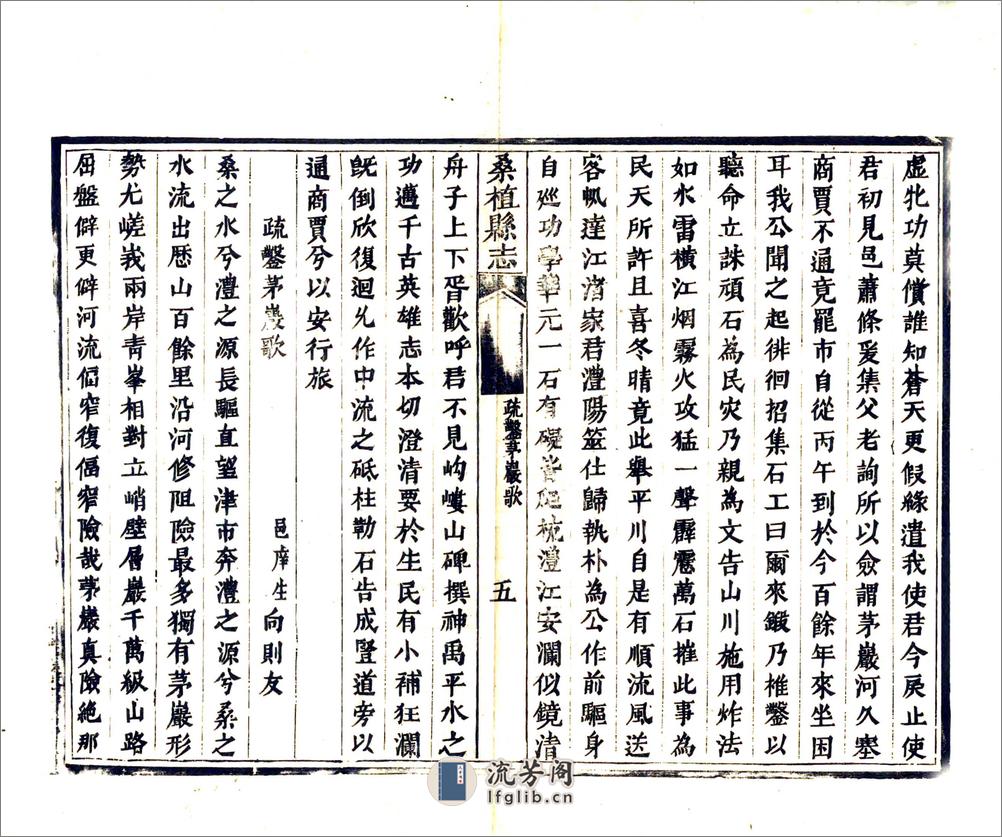 虛牝功莫償誰知蒼天更假緣遣我使君今戾止使
君初見邑蕭條爰集父老詢所以僉謂茅巖河久塞
商賈不通竟罷市自從丙午到於今百餘年來坐困
耳我公聞之起徘徊招集石工曰爾來鍛乃椎鑿以
聽命立誅頑石為民灾乃親為文告山川施用炸法
如水雷橫江烟霧火攻猛一聲霹靂萬石摧此事為
民天所許且喜冬晴竟此舉平川自是有順流風送
客帆達江渚家君澧陽筮仕歸執朴為公作前驅身
自廵功學華元一石有礙皆
澧江安瀾似鏡清
桑植縣志
疏鑿茅巖歌
五
舟子上下胥歡呼君不見岣嶁山碑撰神禹平水之
功邁千古英雄志本切澄清要於生民有小補狂瀾
既倒欣復迴允作中流之砥柱勒石告成豎道旁以
通商賈兮以安行旅
疏鑿茅巖歌
邑庠生向則友
桑之水兮澧之源長驅直望津市奔澧之源兮桑之
水流出歷山百餘里沿河修阻險最多獨有茅巖形
勢尤嵯峩兩岸青峯相對立峭壁層巖千萬級山路
屈盤僻更僻河流偪窄復偪窄險哉茅巖真險絶那
流芳阁
lfglib.cn